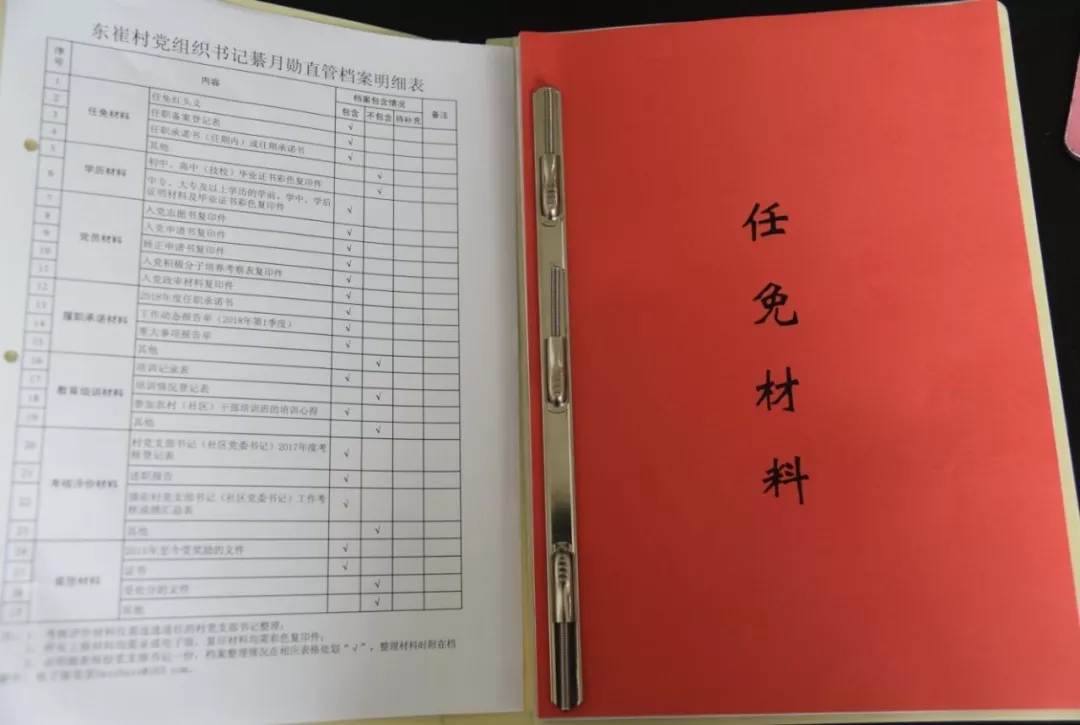 东崔村党组织书记綦月勋直管档案明细表
序号 内容 档案包含情况 备注
包含 不包含 待补充
任免材料
1 任免红头文
2 任职备案登记表 √
3 任职承诺书（任期内）或任期承诺书 √
4 其他 √
学历材料
5 初中、高中（技校）毕业证书彩色复印件 √
6 中专、大专及以上学历的学前、学中、学后
证明材料及毕业证书彩色复印件 √
党员材料
7 入党志愿书复印件 √
8 入党申请书复印件 √
9 转正申请书复印件 √
10 入党积极分子培养考察表复印件 √
11 入党政审材料复印件 √
履职承诺材料
12 2018年度任职承诺书 √
13 工作动态报告单（2018年第1季度） √
14 重大事项报告单 √
15 其他 √
教育培训材料
16 培训记录表 √
17 培训情况登记表 √
18 参加农村（社区）干部培训班的培训心得 √
19 其他 √
考核评价材料
20 村党支部书记（社区党委书记）2017年度考
核登记表 √
21 述职报告 √
22 村党支部书记（社区党委书记）工作考
核成绩汇总表 √
23 其他 √
奖惩材料
24 年至今受奖励的文件 √
25 证书 √
26 受处分的文件 √
27 其他 √
的村党支部书记整理；
复印材料均需彩色复印件；
党支部书记一份，档案整理情况在相应表格处划“√”，整理材料时附在档
任
免
材
料